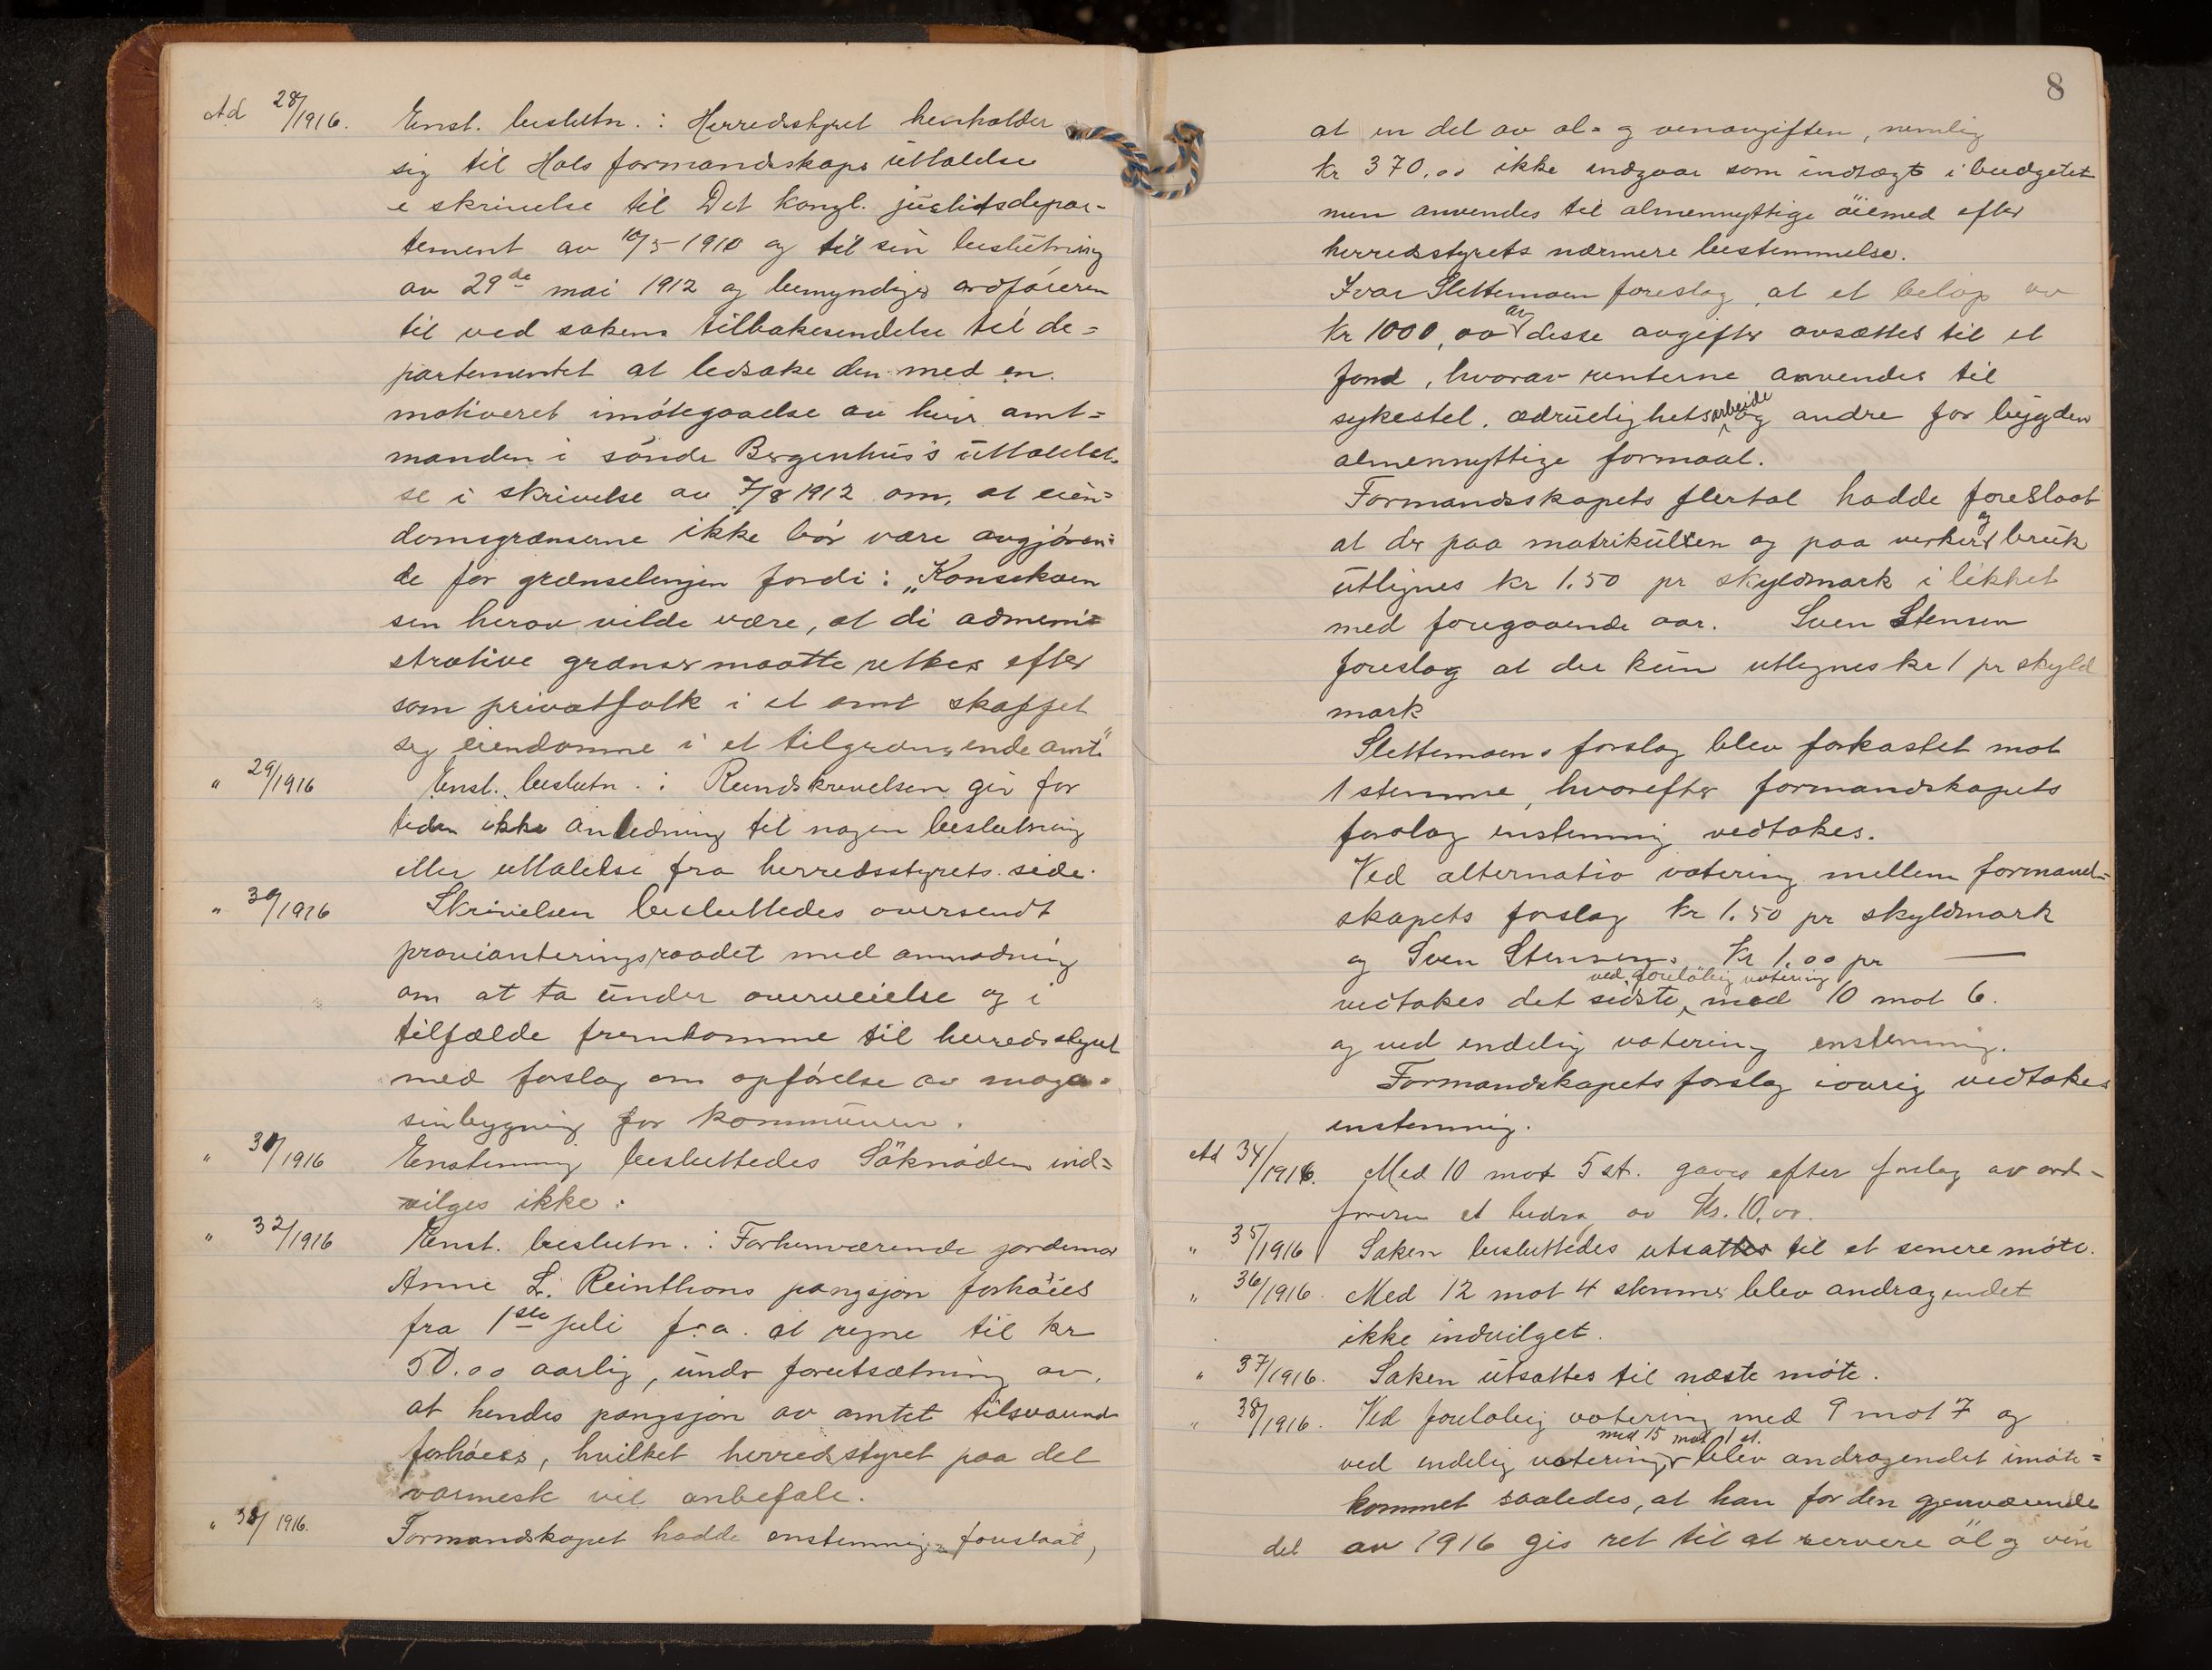 Ad 28/1916. Enst. beslutn.: Herredsstyret henholder
sig til Hols formandskaps uttalelse
i skrivelse til Det kongl. justitsdepar-
tement av 10/5-1910 og til sin beslutning
av 29de mai 1912 og bemyndiges ordføreren
til ved sakens tilbakesendelse til de=
partementet at ledsake den med en
motiveret imøtegaaelse av hvir amt=
manden i søndr Bergenhus's uttalelel-
se i skrivelse av 7/8 1912 om, at eien=
domsgrænserne ikke bør være avgjøren=
de for grænselinjen fordi: „Konsekven
sen herav vilde være, at di admini=
strative grænser maatte rettes efter
som privatfolk i et amt skaffet
seg eiendomme i et tilgrænsende amt."
" 29/1916 Enst. beslutn.: Rundskrivelsen gir for
tiden ikke anledning til nogen beslutning
eller uttalelse fra herredsstyrets side.
" 30/1916 Skrivelsen besluttedes oversendt
provianteringsraadet med anmodning
om at ta under overveielse og i
tilfælde fremkomme til herredsstyret
med forslag om opførelse av maga=
sinbygning for kommunen.
" 31/1916 Enstemmig besluttedes Søknaden ind=
vilges ikke:
" 32/1916 Enst. beslutn.: Forhenværende jordemor
Anne L. Reintons pangsjon forhøies
fra 1ste juli f.a. at regne til kr
50.00 aarlig, under forutsætning av,
at hendes pangsjon av amtet tilsvarende
forhøies, hvilket herredsstyret paa det
varmeste vil anbefale.
" 33/1916. Formandskapet hadde enstemmig foreslaat,
8
at en del av øl- og vinavgiften, nemlig
kr 370.00 ikke indgaar som indtægt i budgetet
men anvendes til almennyttige øiemed efter
herredsstyrets nærmere bestemmelse.
Ivar Slettemoen foreslog, at et beløp av
kr 1000,00 av disse avgifter avsættes til et
fond, hvorav renterne anvendes til
sykestel, ædruelighetsarbeide og andre for bygden
almennyttige formaal.
Formandsskapets flertal hadde foreslaat
at der paa matrikulen og paa verker og bruk
utlignes kr 1.50 pr skyldmark i likhet
med foregaaende aar. Sven Stensen
foreslog at der kun utlignes kr 1 pr skyld
mark
Slettemoens forslag blev forkastet mot
1 stemme, hvorefter formandskapets
forslag enstemmig vedtokes.
Ved alternativ votering mellem formand=
skapets forslag kr 1.50 pr skyldmark
og Sven Stensens kr 1.00 pr —
vedtokes det sidste, ved foreløbig votering med 10 mot 6.
og ved endelig votering enstemmig.
Formandskapets forslag iøvrig vedtokes
enstemmig.
Ad 34/1916. Med 10 mot 5 st. gaves efter forslag av ord-
føreren et bidrag av Kr. 10.00.
" 35/1916 Saken besluttedes utsattes til et senere møte.
" 36/1916. Med 12 mot 4 stemmer blev andragendet
ikke indvilget.
" 37/1916. Saken utsattes til næste møte.
" 38/1916. Ved foreløbig votering med 9 mot 7 og
ved endelig votering med 15 mot 1 st. blev andragendet imøte=
kommet saaledes, at han for den gjenværende
del av 1916 gis ret til at servere øl og vin